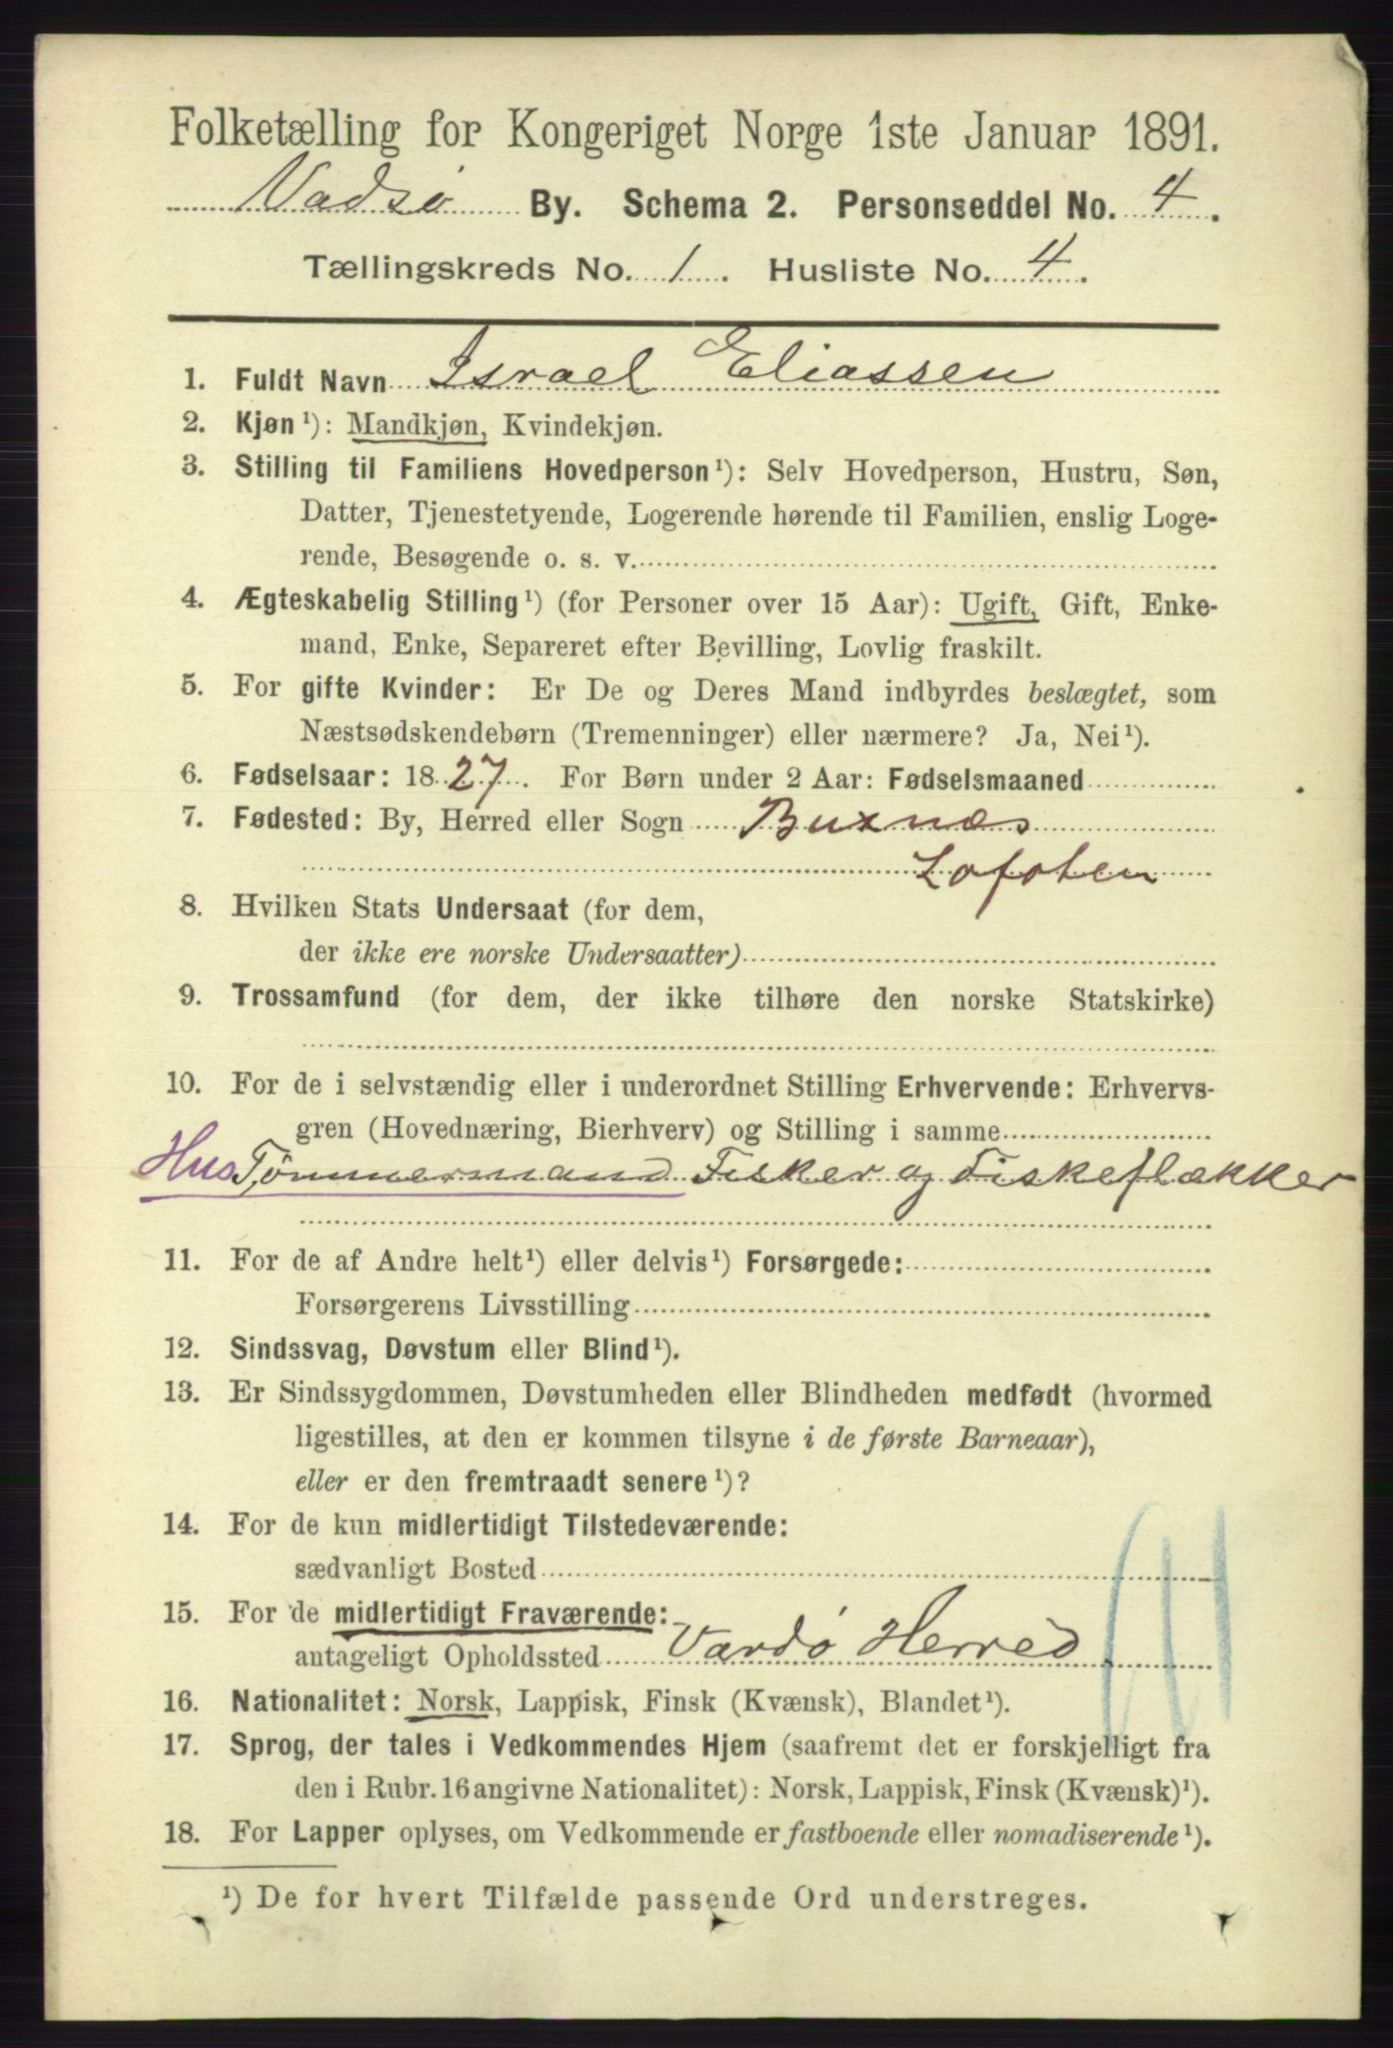 Folketælling for Kongeriget Norge 1ste Januar 1891.
Vadsø By. Schema 2. Personseddel No. 4.
Tællingskreds No. 1. Husliste No. 4.
1. Fuldt Navn Israel Eliassen
2. Kjøn¹): Mandkjøn, Kvindekjøn.
3. Stilling til Familiens Hovedperson¹): Selv Hovedperson, Hustru, Søn,
Datter, Tjenestetyende, Logerende hørende til Familien, enslig Loge-
rende, Besøgende o. s. v.
4. Ægteskabelig Stilling¹) (for Personer over 15 Aar): Ugift, Gift, Enke-
mand, Enke, Separeret efter Bevilling, Lovlig fraskilt.
5. For gifte Kvinder: Er De og Deres Mand indbyrdes beslægtet, som
Næstsødskendebørn (Tremenninger) eller nærmere? Ja, Nei¹).
6. Fødselsaar: 1827. For Børn under 2 Aar: Fødselsmaaned
7. Fødested: By, Herred eller Sogn Buxnæs
Lofoten
8. Hvilken Stats Undersaat (for dem,
der ikke ere norske Undersaatter)
9. Trossamfund (for dem, der ikke tilhøre den norske Statskirke)
10. For de i selvstændig eller i underordnet Stilling Erhvervende: Erhvervs-
gren (Hovednæring, Bierhverv) og Stilling i samme
Hus Tømmermand Fisker og Fiskeflækker
11. For de af Andre helt¹) eller delvis¹) Forsørgede:
Forsørgerens Livsstilling
12. Sindssvag, Døvstum eller Blind¹).
13. Er Sindssygdommen, Døvstumheden eller Blindheden medfødt (hvormed
ligestilles, at den er kommen tilsyne i de første Barneaar),
eller er den fremtraadt senere¹)?
14. For de kun midlertidigt Tilstedeværende:
sædvanligt Bosted
15. For de midlertidigt Fraværende:
antageligt Opholdssted Vardø Herred
16. Nationalitet: Norsk, Lappisk, Finsk (Kvænsk), Blandet¹).
17. Sprog, der tales i Vedkommendes Hjem (saafremt det er forskjelligt fra
den i Rubr. 16 angivne Nationalitet): Norsk, Lappisk, Finsk (Kvænsk)¹).
18. For Lapper oplyses, om Vedkommende er fastboende eller nomadiserende¹).
¹) De for hvert Tilfælde passende Ord understreges.